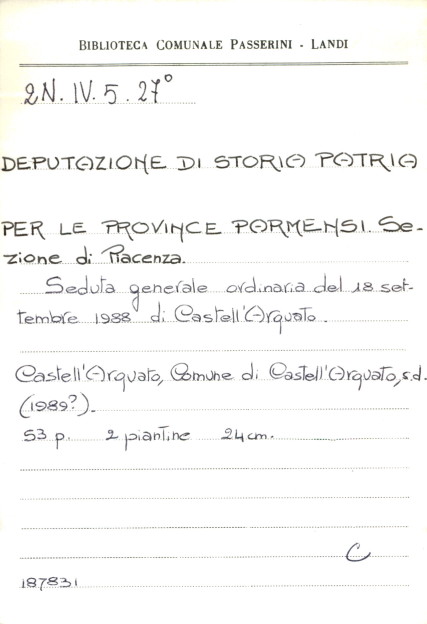 BIBLIOTECA COMUNALE PASSERINI - LANDI
2N. IV. 5. 27°
DEPUTAZIONE DI STORIA PATRIA
PER LE PROVINCE PARMENSI. Se-
zione di Piacenza.
Seduta generale ordinaria del 18 set-
tembre 1988 di Castell'Arquato.
Castell'Arquato, Comune di Castell'Arquato, s.d.
(1989?).
53 p. 2 piantine 24 cm.
C
187831